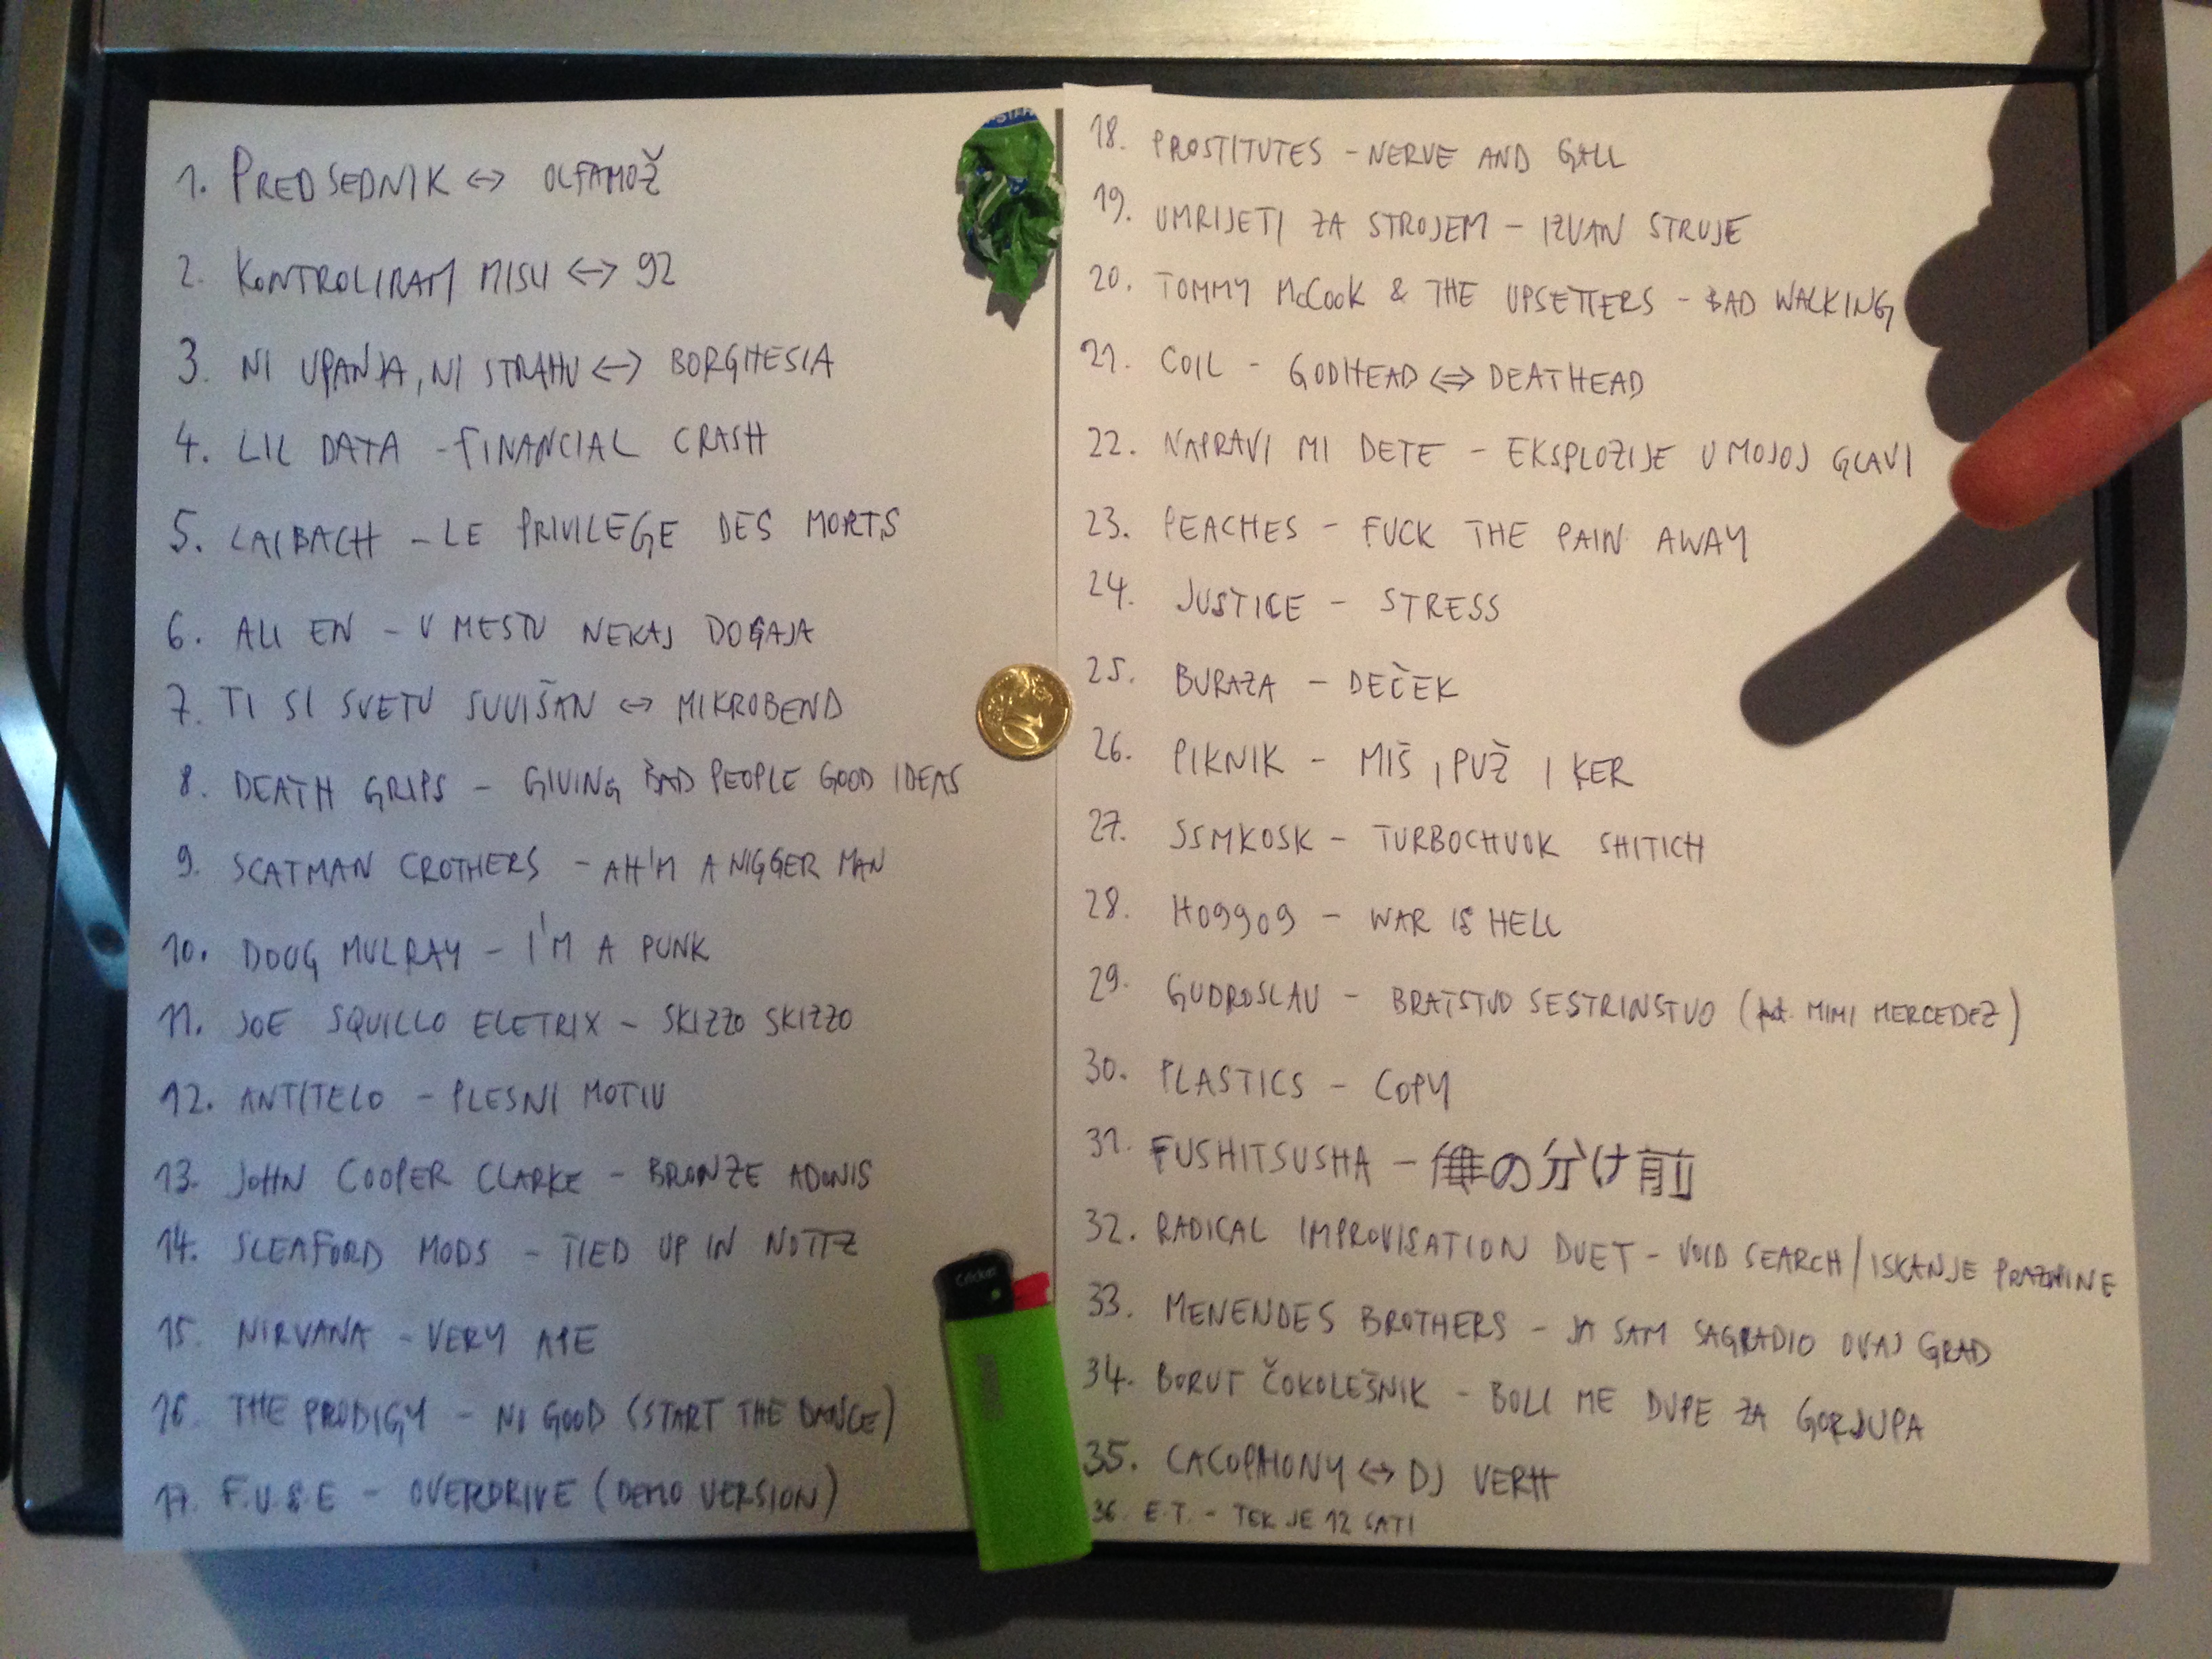 1. PREDSEDNIK <-> OLFAMOŽ
2. KONTROLIRAM MISLI <-> 92
3. NI UPANJA, NI STRAHU <-> BORGHESIA
4. LIL DATA - FINANCIAL CRASH
5. LAIBACH - LE PRIVILEGE DES MORTS
6. ALI EN - V MESTU NEKAJ DOGAJA
7. TI SI SVETU SUVIŠAN <-> MIKROBEND
8. DEATH GRIPS - GIVING BAD PEOPLE GOOD IDEAS
9. SCATMAN CROTHERS - AH'M A NIGGER MAN
10. DOUG MULRAY - I'M A PUNK
11. JOE SQUILLO ELETRIX - SKIZZO SKIZZO
12. ANTITELO - PLESNI MOTIV
13. JOHN COOPER CLARKE - BRONZE ADONIS
14. SLEAFORD MODS - TIED UP IN NOTTZ
15. NIRVANA - VERY APE
16. THE PRODIGY - NO GOOD (START THE DANCE)
17. F.U.S.E - OVERDRIVE (DEMO VERSION)
Cricket
18. PROSTITUTES - NERVE AND GALL
19. UMRIJETI ZA STROJEM - IZVAN STRUJE
20. TOMMY McCOOK & THE UPSETTERS - BAD WALKING
21. COIL - GODHEAD <=> DEATHEAD
22. NAPRAVI MI DETE - EKSPLOZIJE U MOJOJ GLAVI
23. PEACHES - FUCK THE PAIN AWAY
24. JUSTICE - STRESS
25. BURAZA - DEČEK
26. PIKNIK - MIŠ, PUŽ I KER
27. SSMKOSK - TURBOCHVOK SHITICH
28. HO99O9 - WAR IS HELL
29. GUDROSLAV - BRATSTVO SESTRINSTVO (feat. MIMI MERCEDEZ)
30. PLASTICS - COPY
31. FUSHITSUSHA - 俺の分け前
32. RADICAL IMPROVISATION DUET - VOID SEARCH / ISKANJE PRAZNINE
33. MENENDES BROTHERS - JA SAM SAGRADIO OVAJ GRAD
34. BORUT ČOKOLEŠNIK - BOLI ME DUPE ZA GORJUPA
35. CACOPHONY <-> DJ VERH
36. E.T. - TEK JE 12 SATI